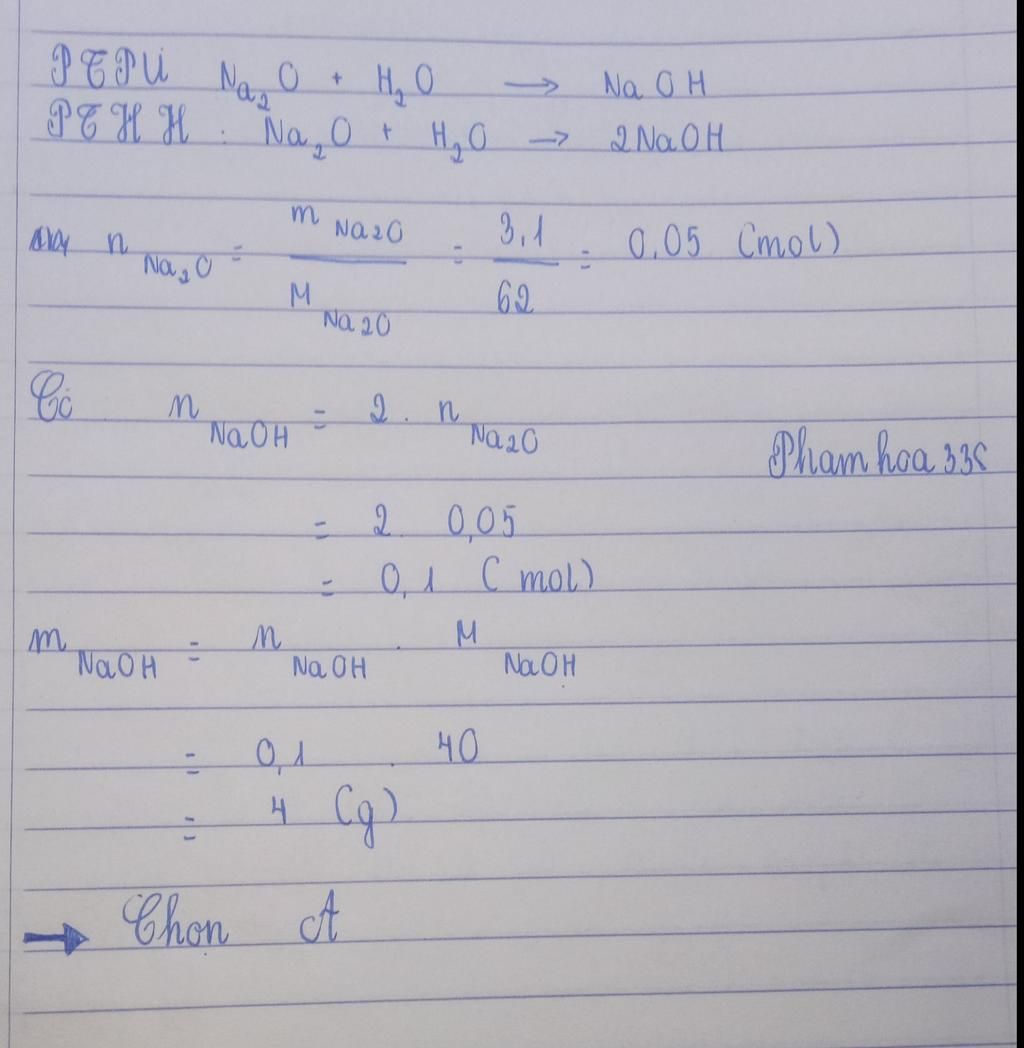 PTPƯ Na₂O + H₂O → NaOH
PTHH : Na₂O + H₂O → 2NaOH
n Na₂O = m Na2O / M Na2O = 3,1 / 62 = 0,05 (mol)
Có n NaOH = 2 . n Na2O
Phamhoa335
= 2 0,05
= 0,1 (mol)
m NaOH = n NaOH . M NaOH
= 0,1 . 40
= 4 (g)
→ Chọn A